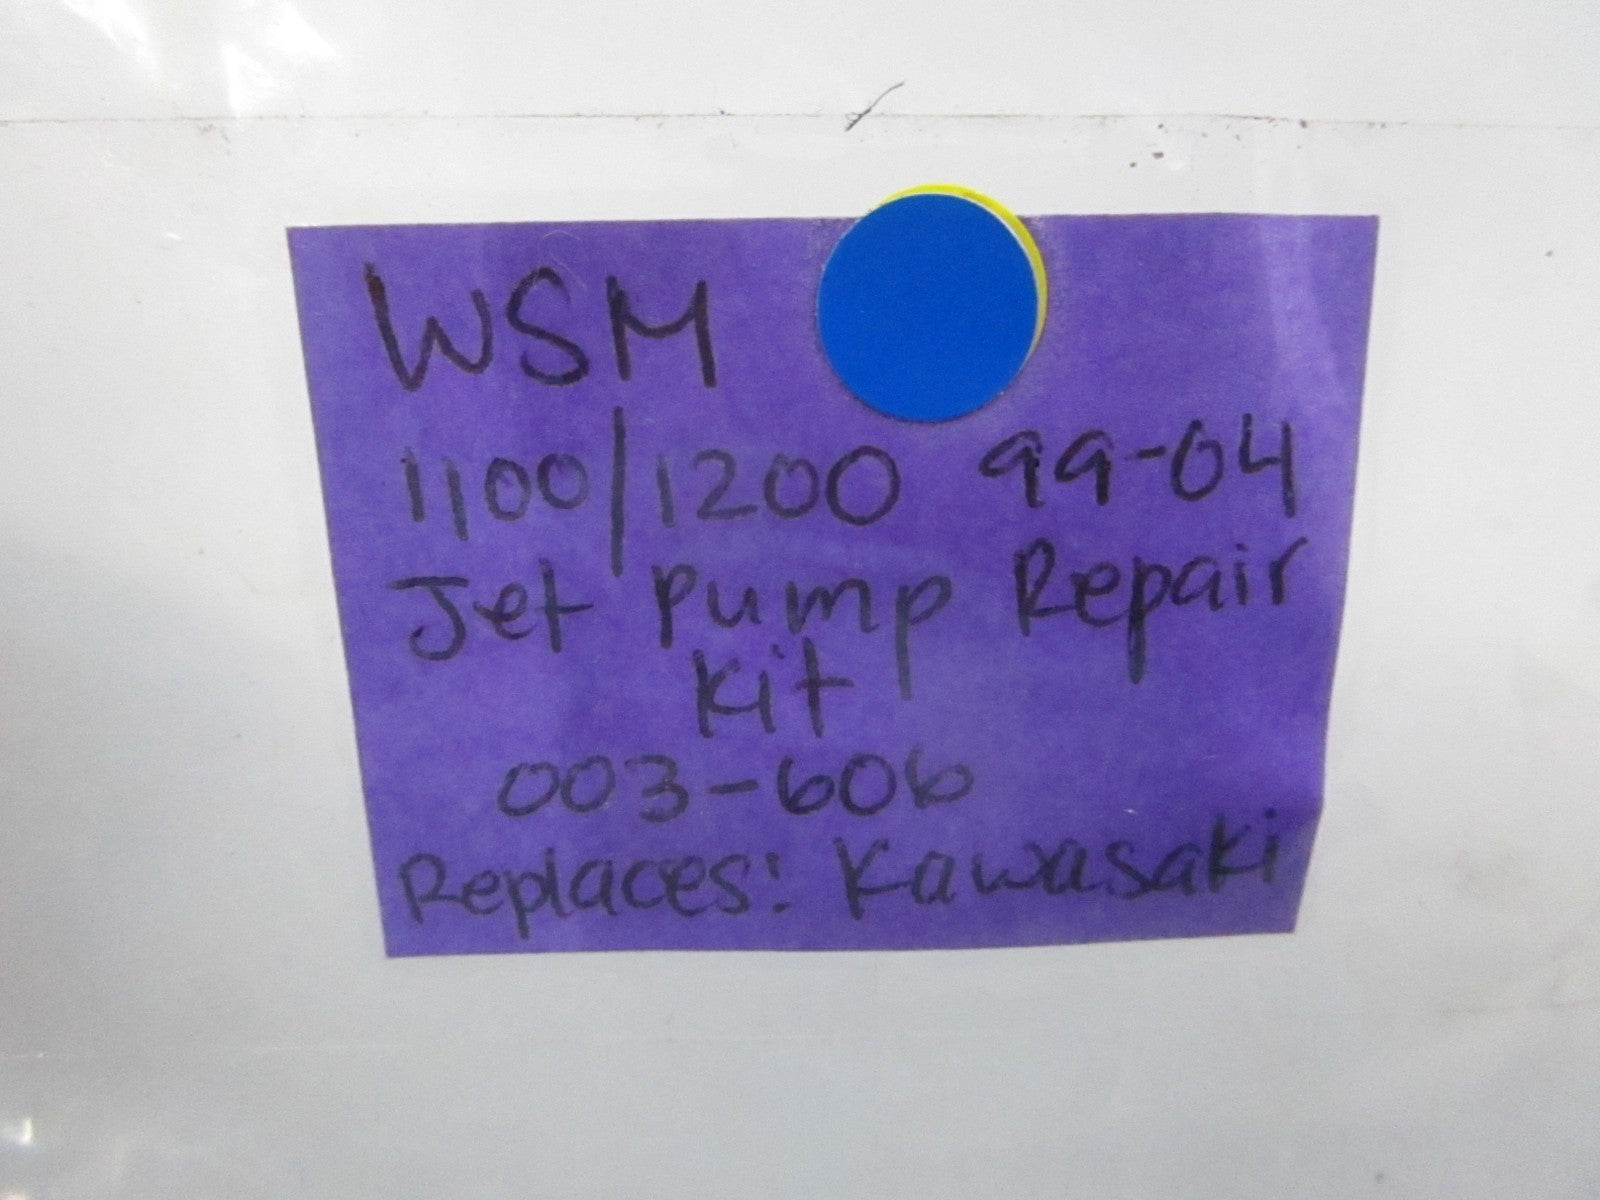 WSM
1100/1200 99-04
Jet Pump Repair
Kit
003-606
Replaces: Kawasaki